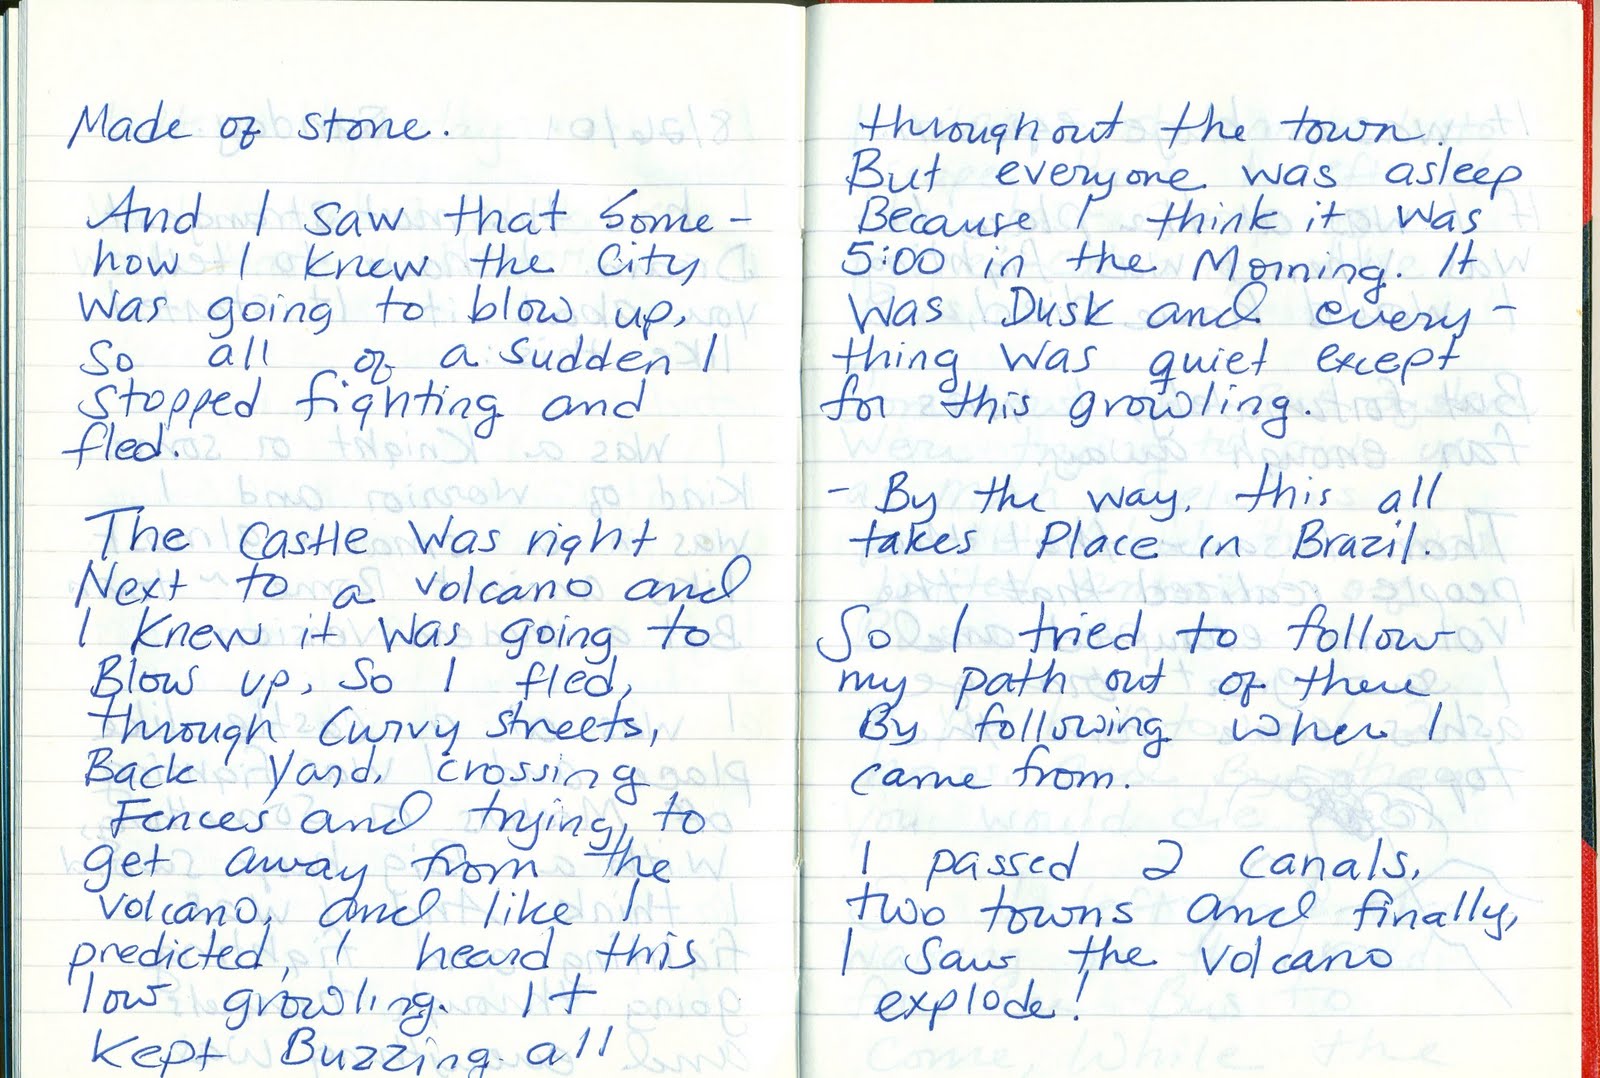 Made of stone.
And I saw that some-
how I knew the City
was going to blow up,
So all of a sudden I
stopped fighting and
fled.
The Castle was right
Next to a volcano and
I knew it was going to
Blow up, So I fled,
through Curvy streets,
Back yard, crossing
Fences and trying, to
get away from the
volcano, and like I
predicted, I heard this
low growling. It
kept Buzzing all
throughout the town.
But everyone was asleep
Because I think it was
5:00 in the Morning. It
was Dusk and every-
thing was quiet except
for this growling.
- By the way, this all
takes Place in Brazil.
So I tried to follow
my path out of there
By following where I
came from.
I passed 2 canals,
two towns and finally,
I saw the volcano
explode!